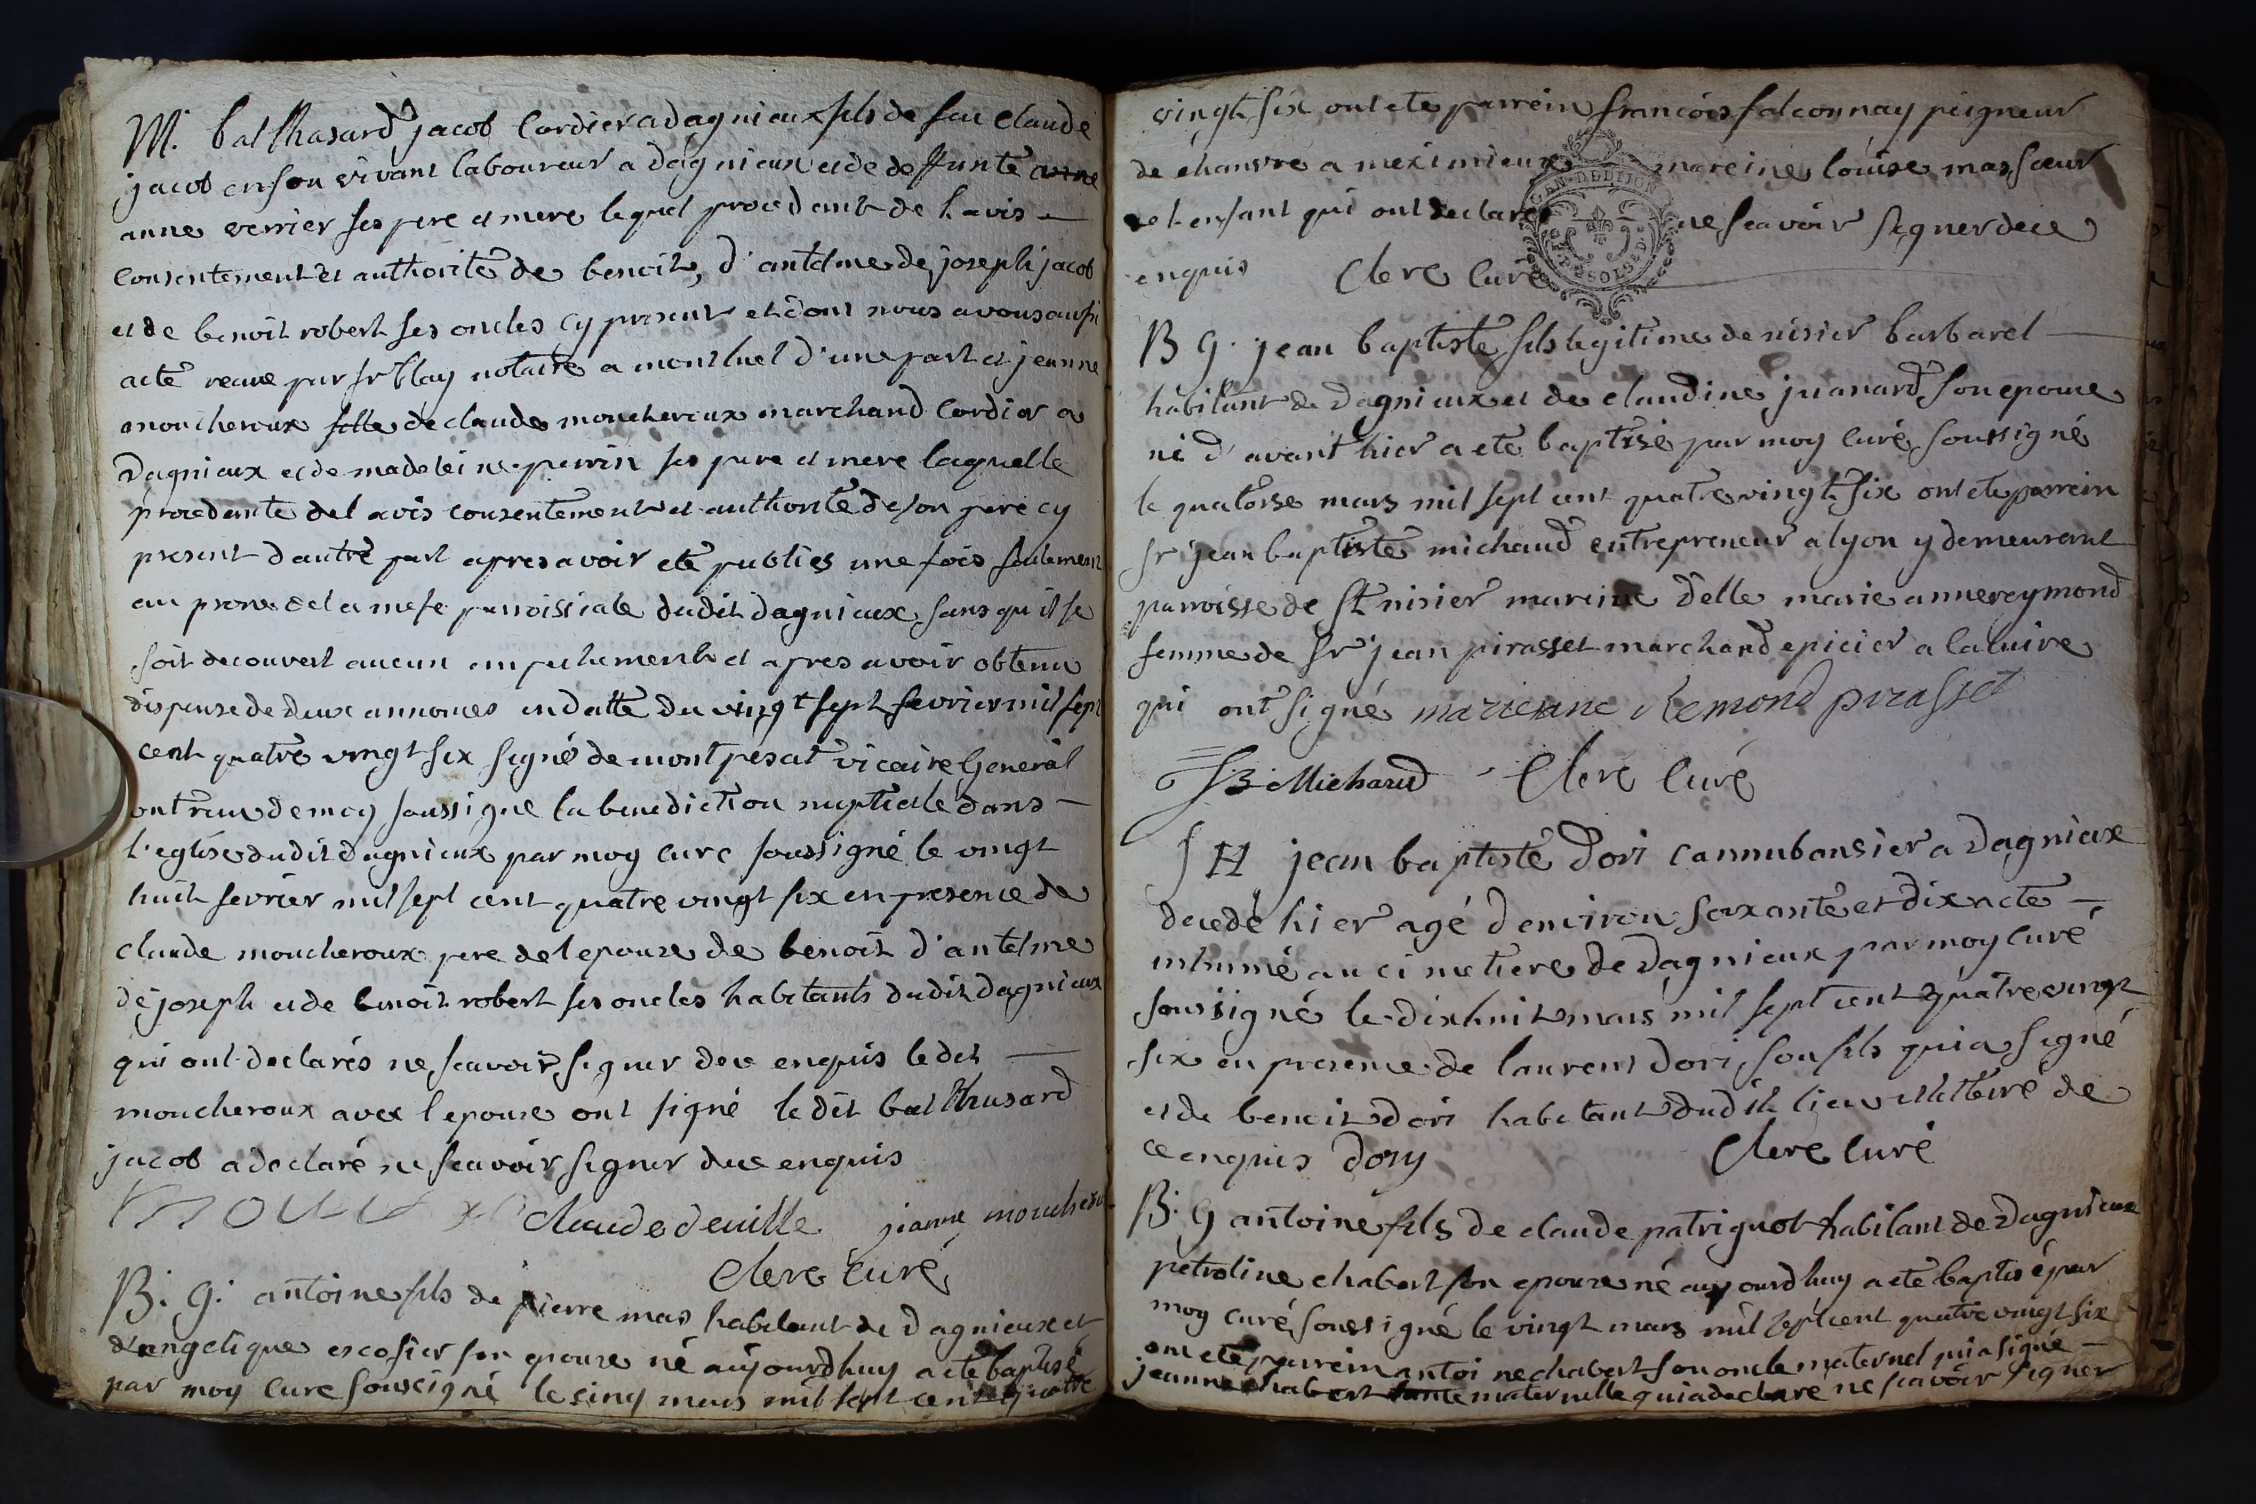 M. balthasard jacob cordier a dagnieux fils de feu claude
jacob en son vivant laboureur a dagnieux et de deffunte anne
anne verrier ses pere et mere lequel procedant de l'avis
consentement et authorité de benoit, d'antelme de joseph jacob
et de benoit robert ses oncles cy present et dont nous avons aussi
acte receue par sr blay notaire a montluel d'une part et jeanne
moucheroux fille de claude moucheroux marchand cordier a
dagnieux et de madeleine perrin ses pere et mere laquelle
procedante de l avis consentement et authorité de son pere cy
present d autre part apres avoir eté publiés une fois seulement
au prone de la messe parroissiale dudit dagnieux sans qu il se
soit decouvert aucun empechement et apres avoir obtenu
dispense de deux annonces en datte du vingt sept fevrier mil sept
cent quatre vingt six signé de montpesat vicaire general
ont receu de moy soussigné la benediction nuptiale dans
l'eglise dudit dagnieux par moy curé soussigné le vingt
huit fevrier mil sept cent quatre vingt six en presence de
claude moucheroux pere de l epouse de benoit d'antelme
de joseph et de benoit robert ses oncles habitants dudit dagnieux
qui ont declarés ne scavoir signer de ce enquis le dit
moucheroux avec l epouse ont signé le dit balthasard
jacob a declaré ne scavoir signer de ce enquis
claude deuille jianne moucherou
Clerc curé
B. G. antoine fils de pierre mas habitant de dagnieux et
d'angelique escofier son epouse né aujourdhuy a eté baptisé
par moy curé soussigné le cinq mars mil sept cent quatre
vingt six ont ete parrein francois falconnay peigneur
de chanvre a meximieux mareine louise mas soeur
de l enfant qui ont declaré ne scavoir signer de ce
enquis Clerc curé
GEN. DE DIJON
B G. jean baptiste fils legitime de nisier barbarel
habitant de dagnieux et de claudine juanard son epouse
né d'avant hier a eté baptisé par moy curé soussigné
le quatorse mars mil sept cent quatre vingt six ont ete parrein
sr jean baptiste michaud entrepreneur a lyon y demeurant
parroisse de st nisier mareine delle marie anne reymond
femme de sr jean pirasset marchand epicier a la cuire
qui ont signé marieanne Remond pirasset
JB Michaud Clerc curé
S H jean baptiste dori cannubansier a dagnieux
decedé hier agé d environ soixante et dix a eté
inhumé au cimetiere de dagnieux par moy curé
soussigné le dixhuit mars mil sept cent quatre vingt
six en presence de laurent dori son fils qui a signé
et de benoit dori habitant dudit lieu illitéré de
ce enquis Dory Clerc curé
B. G antoine fils de claude patriquot habitant de dagnieux
petroline chabert son epouse né aujourdhuy a eté baptisé par
moy curé soussigné le vingt mars mil sept cent quatre vingt six
ont eté parrein antoine chabert son oncle maternel qui a signé
jeanne chabert tante maternelle qui a declaré ne scavoir signer